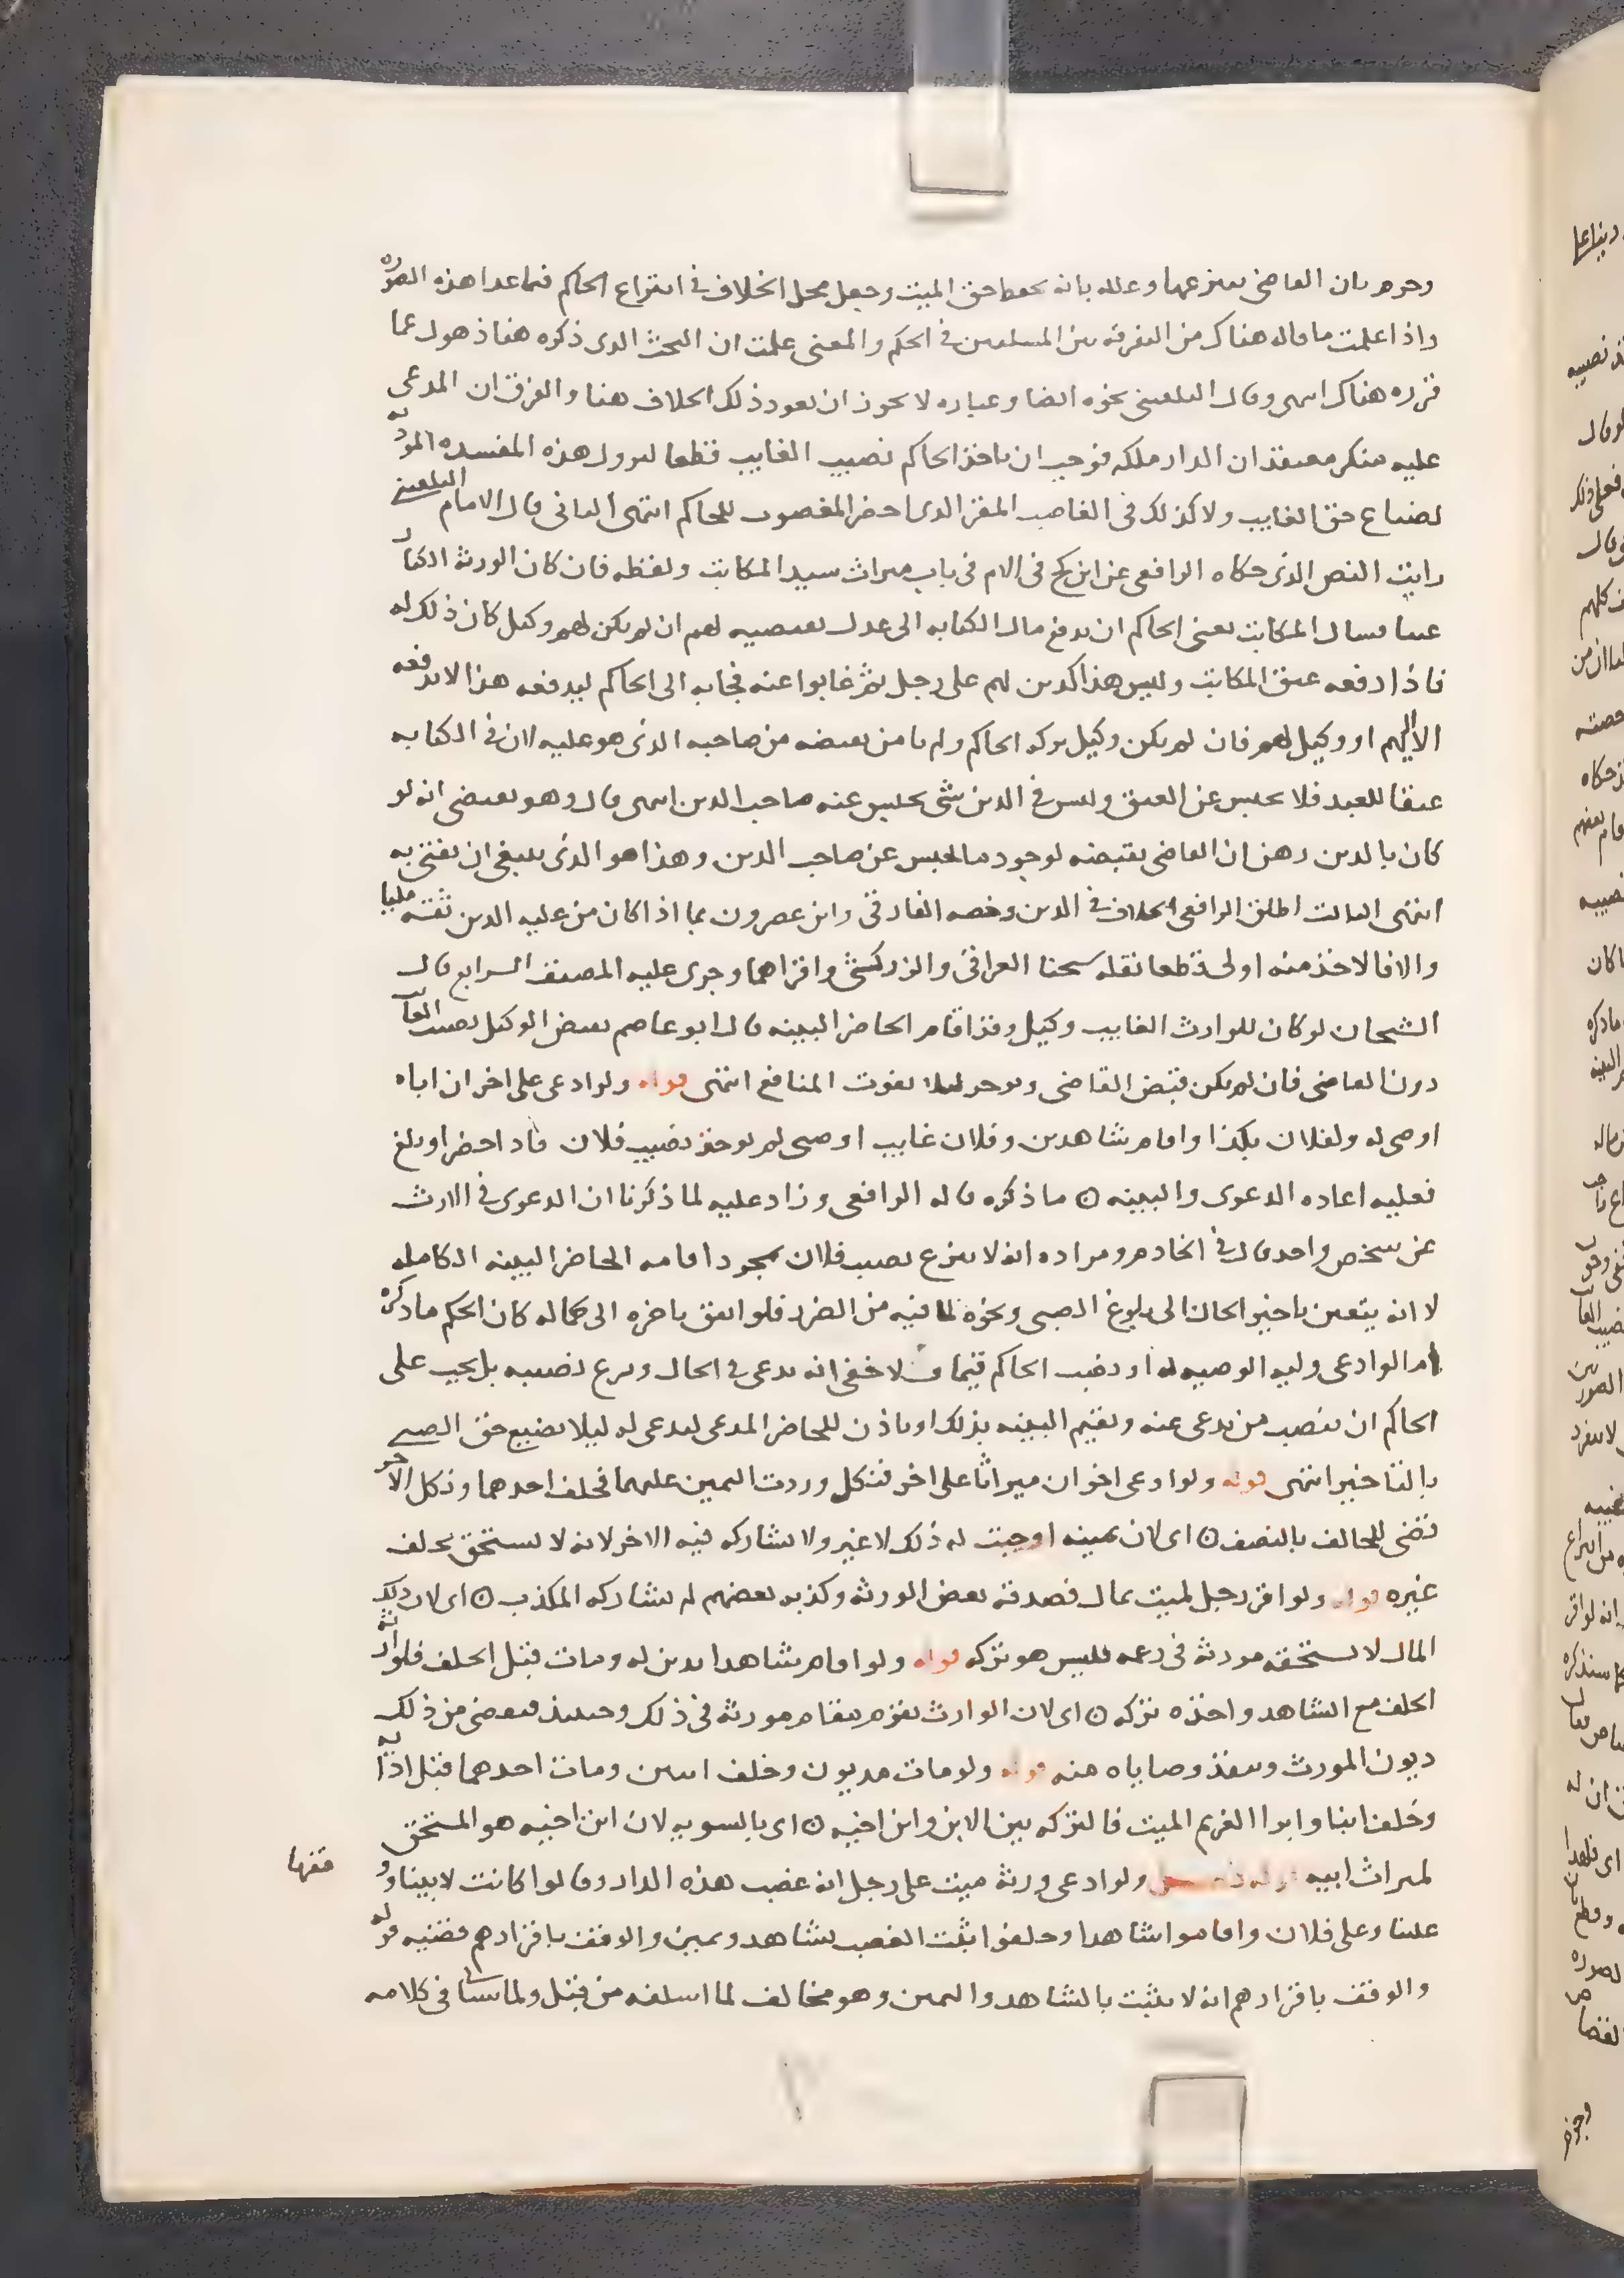 وجزم بان القاضي ينزعها وعلله بانه يحفظ حق الميت وجعل محل الخلاف في انتزاع الحاكم فيما عدا هذه الصوره
واذا علمت ما قاله هناك من التفرقه بين المسلمين في الحكم والمعنى علمت ان البحث الذي ذكره هنا ذهول عما
قرره هناك انتهى وقال البلقيني نحوه ايضا وعبارته لا يجوز ان يعود ذلك الخلاف هنا والفرق ان المدعى
عليه منكر معتقد ان الدار ملكه فوجب ان ياخذ الحاكم نصيب الغايب قطعا لتزول هذه المفسده الموديه
لضياع حق الغايب ولا كذلك في الغاصب المقر الذي احضر المغصوب للحاكم انتهى الثاني قال الامام البلقيني
رايت النص الذي حكاه الرافعي عن ابن كج في الام في باب ميراث سيد المكاتب ولفظه فان كان الورثه الكبار
غيبا فسال المكاتب يعني الحاكم ان يدفع مال الكتابه الى عدل يقبضه لهم ان لم يكن لهم وكيل كان ذلك له
فاذا دفعه عتق المكاتب وليس هذا كدين لهم على رجل ثم غابوا عنه فجا به الى الحاكم ليدفعه هذا لا يدفعه
الا اليهم او وكيل لهم فان لم يكن وكيل تركه الحاكم ولم يامن بقبضه من صاحبه الذي هو عليه لان في الكتابه
عتقا للعبد فلا يحبس عن العتق وليس في الدين شي يحبس عنه صاحب الدين انتهى قال وهو يقتضي انه لو
كان بالدين رهن ان القاضي يقبضه لوجود ما لحبس عن صاحب الدين وهذا هو الذي ينبغي ان يفتى به
انتهى الثالث اطلق الرافعي الخلاف في الدين وخصه الفارقي وابن عصرون بما اذا كان من عليه الدين ثقه مليا
والا فالاخذ منه اولى قطعا نقله شيخنا العراقي والزركشي واقراهما وجرى عليه المصنف الرابع قال
الشيخان لو كان للوارث الغايب وكيل وقد اقام الحاضر البينه قال ابو عاصم يقبض الوكيل نصيب الغايب
دون القاضي فان لم يكن قبض القاضي ويوجر ليلا يفوت المنافع انتهى قوله ولو ادعى على اخر ان اباه
اوصى له ولفلان بكذا واقام شاهدين وفلان غايب او صبي لم يوخذ نصيب فلان فاذا حضر او بلغ
فعليه اعاده الدعوى والبينه ن ما ذكره قاله الرافعي وزاد عليه لما ذكرنا ان الدعوى في الارث
عن شخص واحد قال في الخادم ومراده انه لا ينزع نصيب فلان بمجرد اقامه الحاضر البينه الكامله
لا انه يتعين تاخير الحال الى بلوغ الصبي ونحوه لما فيه من الضرر فلو اتفق تاخره الى كماله كان الحكم ما ذكره
اما لو ادعى وليه الوصيه له او نصب الحاكم قيما فلا خفى انه يدعي في الحال وينزع نصيبه بل يجب على
الحاكم ان ينصب من يدعي عنه ويقيم البينه بذلك او ياذن للحاضر المدعي ليدعي له ليلا يضيع حق الصبي
بالتاخير انتهى قوله ولو ادعى اخوان ميراثا على اخر فنكل وردت اليمين عليهما فحلف احدهما ونكل الاخر
قضي للحالف بالنصف ن اي لان يمينه اوجبت له ذلك لا غير ولا يشاركه فيه الاخر لانه لا يستحق بحلف
غيره قوله ولو اقر رجل لميت بمال فصدقه بعض الورثه وكذبه بعضهم لم يشاركه المكذب ن اي لان ذلك
المال لا يستحقه مورثه في زعمه فليس هو تركه قوله ولو اقام شاهدا بدين له ومات قبل الحلف فلوارثه
الحلف مع الشاهد واخذه تركه ن اي لان الوارث يقوم مقام مورثه في ذلك وحينيذ فيقضى من ذلك
ديون المورث وينفذ وصاياه منه قوله ولو مات مديون وخلف ابنين ومات احدهما قبل ادايه
وخلف ابنا وابرا الغريم الميت فالتركه بين الابن وابن اخيه ن اي بالسويه لان ابن اخيه هو المستحق
لميراث ابيه قوله ولو ادعى ورثه ميت على رجل انه غصب هذه الدار وقالوا كانت لابينا وقفها
علينا وعلى فلان واقاموا شاهدا وحلفوا ثبت الغصب بشاهد ويمين والوقف باقرارهم قضيه قوله
والوقف باقرارهم انه لا يثبت بالشاهد واليمين وهو مخالف لما اسلفه من قبل ولما سياتي في كلامه